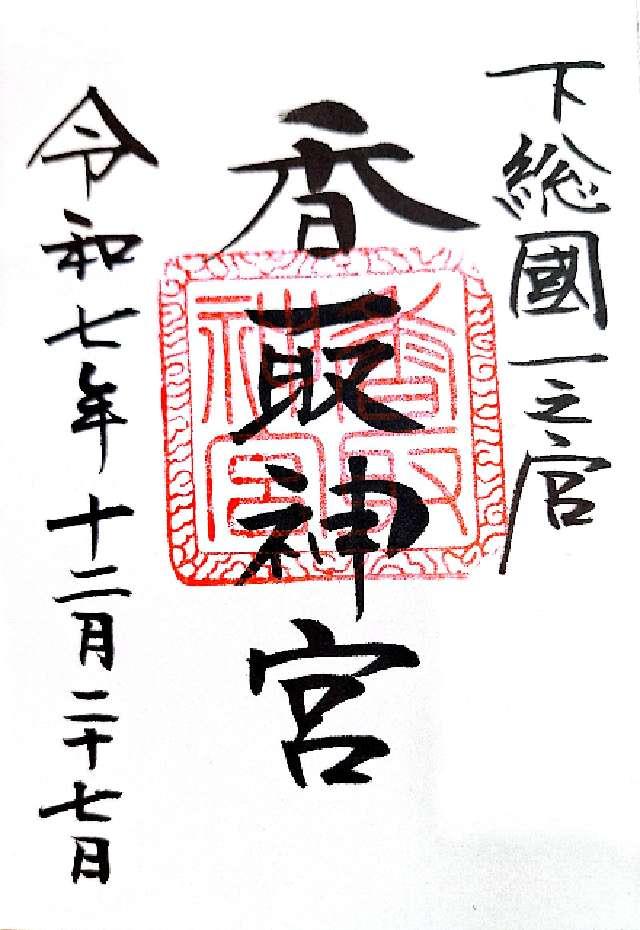 下総國一之宮
香取神宮
香取神宮
令和七年十二月二十七日